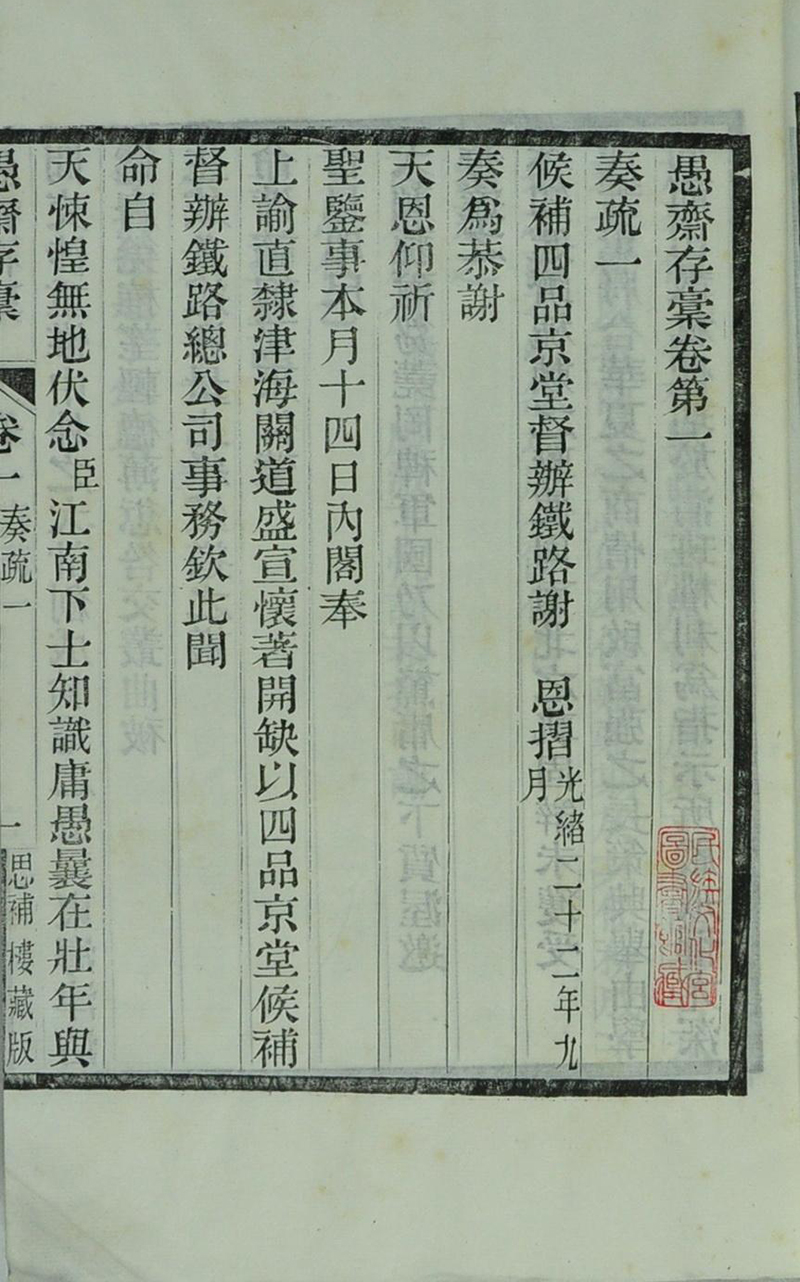 愚齋存稾卷第一
奏疏一
候補四品京堂督辦鐵路謝　恩摺光緒二十二年九月
奏爲恭謝
天恩仰祈
聖鑒事本月十四日內閣奉
上諭直隸津海關道盛宣懷著開缺以四品京堂候補
督辦鐵路總公司事務欽此聞
命自
天悚惶無地伏念臣江南下士知識庸愚曩在壯年與
愚齋存稾　卷一奏疏一　一　思補樓藏版
民族文化宮圖書館藏